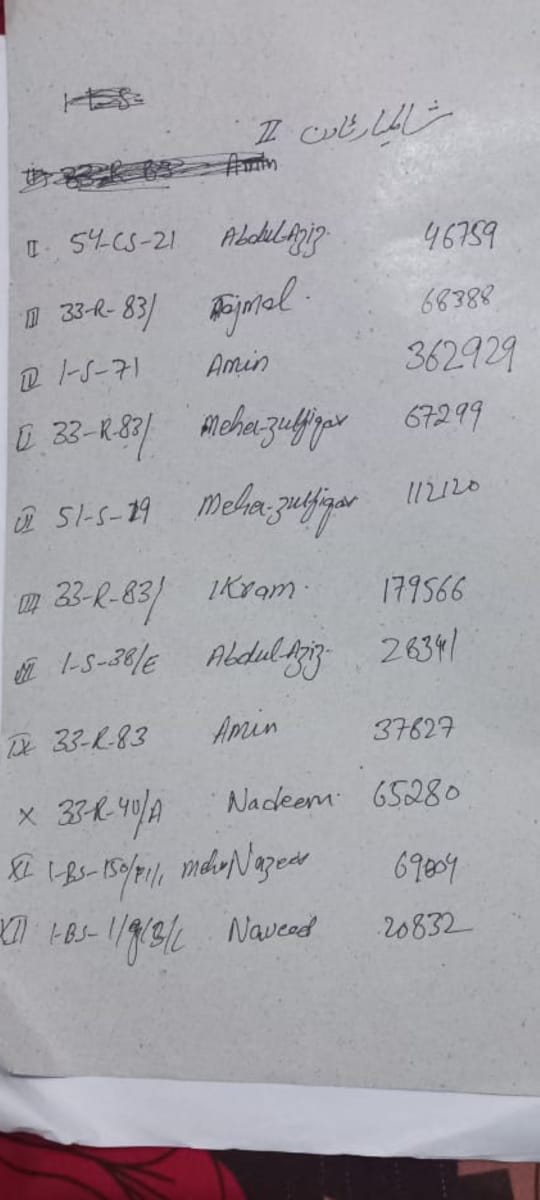 شالیمار ٹاؤن II
II. 54-CS-21 Abdul-Aziz. 46759
III 33-R-83/ Tajmal. 68388
IV 1-S-71 Amin 362929
V 33-R-83/ Meher-zulfiqar 67299
VI 51-S-19 Meher-zulfiqar 112120
VII 33-R-83/ Ikram. 179566
VIII 1-S-38/E Abdul-Aziz. 28341
IX 33-R-83 Amin 37827
X 33-R-40/A Nadeem. 65280
XI 1-BS-150/ Meher Nazeer 69804
XII 1-BS-1/ Naveed 20832